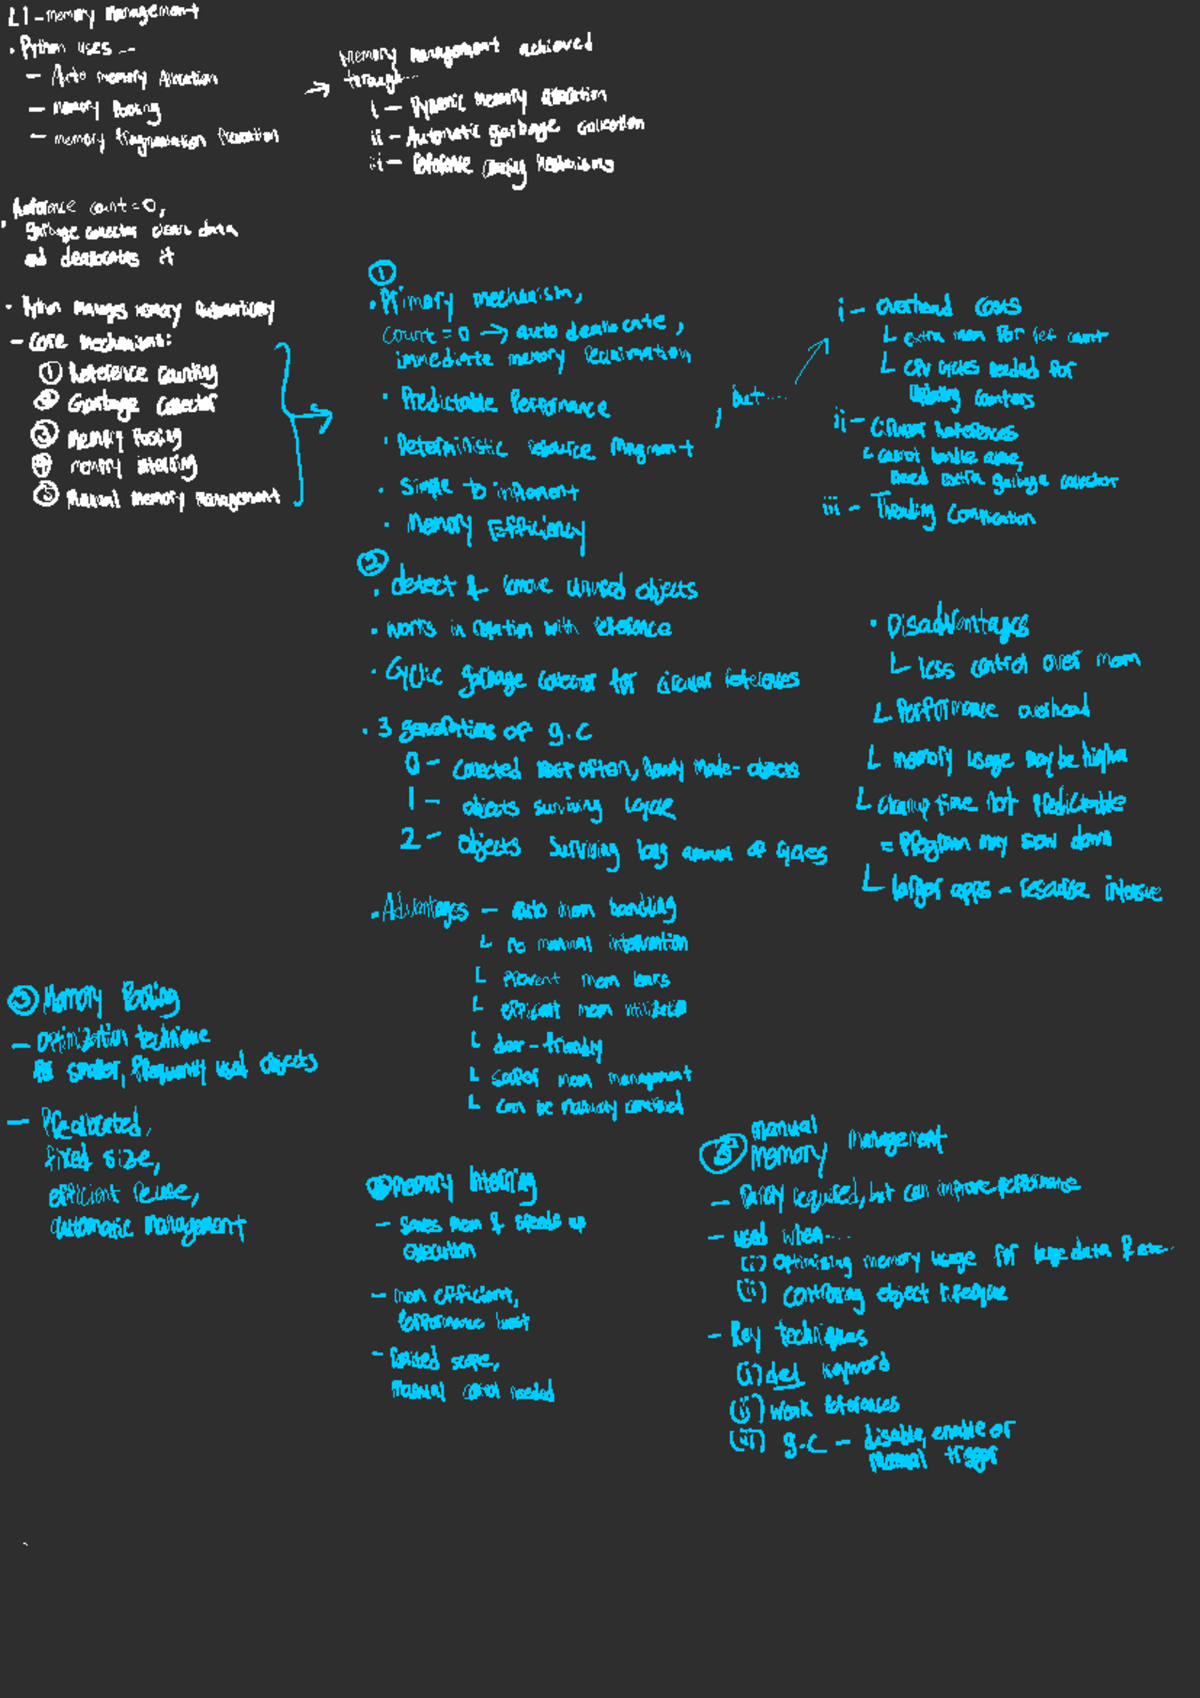 L1 - memory management
• Python uses ...
- Auto memory Allocation
- memory Pooling
- memory fragmentation Prevention
→ Memory management achieved
through...
i - Dynamic memory allocation
ii - Automatic garbage collection
iii - Reference counting Mechanisms
• Reference count = 0,
garbage collector clears data
and deallocates it
• Python manages memory automatically
- Core mechanisms:
① Reference Counting
② Garbage Collector
③ Memory Pooling
④ memory interning
⑤ Manual memory management
①
• Primary mechanism,
count = 0 → auto deallocate,
immediate memory reclamation
• Predictable Performance
• Deterministic resource Mngmant
• Simple to implement
• Memory Efficiency
, but....
i - overhead costs
L extra mem for ref count
L CPU cycles needed for
Updating counters
ii - Circular References
L cannot handle alone,
need extra garbage collector
iii - Threading Complication
②
• detect & remove unused objects
• works in relation with reference
• Cyclic garbage collector for circular references
• 3 generations of g.c
0 - Collected most often, newly made-objects
1 - objects surviving 1 cycle
2 - objects surviving long amount of cycles
• Advantages - auto mem handling
L no manual intervention
L Prevent mem leaks
L efficient mem utilization
L dev-friendly
L safer mem management
L can be manually controlled
• Disadvantages
L less control over mem
L Performance overhead
L memory usage may be higher
L cleanup time not predictable
= Program may slow down
L larger apps - resource intensive
③ Memory Pooling
- optimization technique
for smaller, frequently used objects
- Preallocated,
fixed size,
efficient reuse,
automatic management
④ memory Interning
- saves mem & speeds up
execution
- mem efficient,
Performance boost
- limited scope,
Manual control needed
⑤ manual
memory management
- Rarely required, but can improve performance
- used when...
(i) optimising memory usage for large data & etc..
(ii) controlling object lifecycle
- Key techniques
(i) del keyword
(ii) weak references
(iii) g.c - disable, enable or
manual trigger